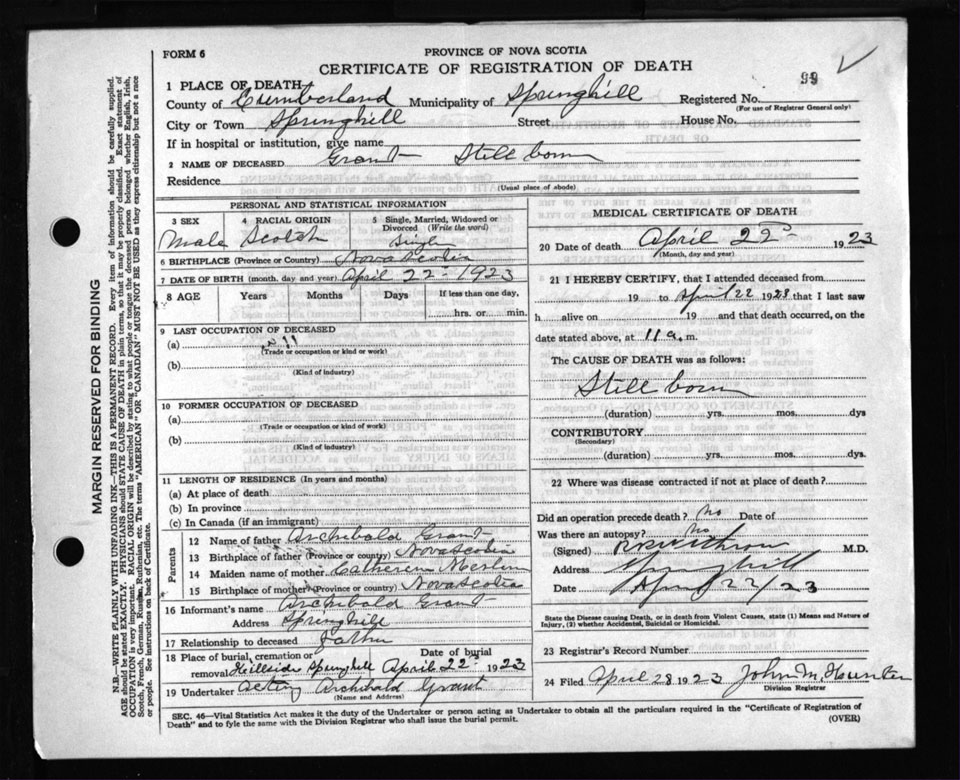 FORM 6
PROVINCE OF NOVA SCOTIA
CERTIFICATE OF REGISTRATION OF DEATH
99
1 PLACE OF DEATH
County of Cumberland Municipality of Springhill Registered No.
(For use of Registrar General only)
City or Town Springhill Street House No.
If in hospital or institution, give name
2 NAME OF DECEASED Grant Still born
Residence
(Usual place of abode)
PERSONAL AND STATISTICAL INFORMATION
3 SEX 4 RACIAL ORIGIN 5 Single, Married, Widowed or Divorced (Write the word)
Male Scotch Single
6 BIRTHPLACE (Province or Country) Nova Scotia
7 DATE OF BIRTH (month, day and year) April 22 1923
8 AGE Years Months Days If less than one day,
hrs. or min.
9 LAST OCCUPATION OF DECEASED
(a)
(Trade or occupation or kind or work)
(b)
(Kind of industry)
10 FORMER OCCUPATION OF DECEASED
(a)
(Trade or occupation or kind of work)
(b)
(Kind of industry)
11 LENGTH OF RESIDENCE (In years and months)
(a) At place of death
(b) In province
(c) In Canada (if an immigrant)
Parents
12 Name of father Archibald Grant
13 Birthplace of father (Province or country) Nova Scotia
14 Maiden name of mother Catherin
15 Birthplace of mother (Province or country) Nova Scotia
16 Informant's name Archibald Grant
Address Springhill
17 Relationship to deceased Father
18 Place of burial, cremation or removal Hillside Springhill Date of burial April 22 1923
19 Undertaker Acting Archibald Grant
(Name and Address)
MEDICAL CERTIFICATE OF DEATH
20 Date of death April 22 1923
(Month, day and year)
21 I HEREBY CERTIFY, that I attended deceased from
19 to April 22 1923 that I last saw
h alive on 19 and that death occurred, on the
date stated above, at 11 a.m.
The CAUSE OF DEATH was as follows:
Still born
(duration) yrs. mos. dys
CONTRIBUTORY
(Secondary)
(duration) yrs. mos. dys.
22 Where was disease contracted if not at place of death?
Did an operation precede death? No Date of
Was there an autopsy? No
(Signed) M.D.
Address Springhill
Date April 22/23
State the Disease causing Death, or in death from Violent Causes, state (1) Means and Nature of Injury, (2) whether Accidental, Suicidal or Homicidal.
23 Registrar's Record Number
24 Filed April 28 1923 John M. Hunter
Division Registrar
SEC. 46—Vital Statistics Act makes it the duty of the Undertaker or person acting as Undertaker to obtain all the particulars required in the "Certificate of Registration of
Death" and to fyle the same with the Division Registrar who shall issue the burial permit.
(OVER)
MARGIN RESERVED FOR BINDING
N.B.—WRITE PLAINLY WITH UNFADING INK—THIS IS A PERMANENT RECORD. Every item of information should be carefully supplied.
AGE should be stated EXACTLY. PHYSICIANS should STATE CAUSE OF DEATH in plain terms, so that it may be properly classified. Exact statement of
OCCUPATION is very important. RACIAL ORIGIN will be described by stating to what people or tongue the deceased person belonged whether English, Irish,
Scotch, French, German, Russian, Ruthenian, etc. The terms "AMERICAN" OR "CANADIAN" MUST NOT BE USED as they express citizenship but not a race
or people. See instructions on back of Certificate.